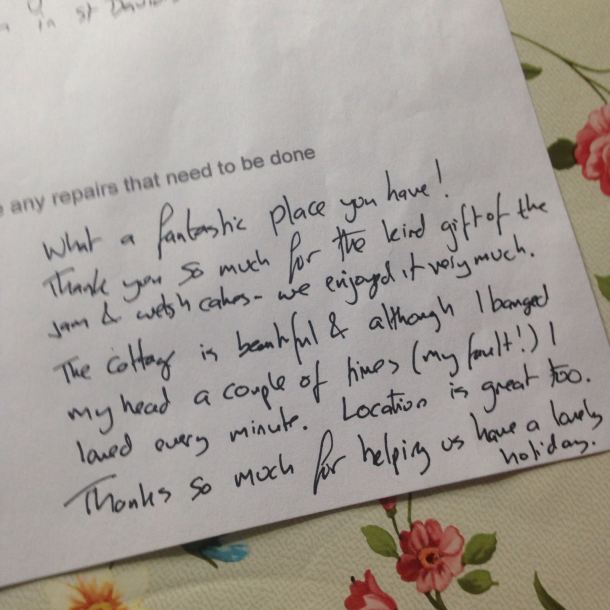 in st Davids
any repairs that need to be done
What a fantastic place you have!
Thank you so much for the kind gift of the
jam & welsh cakes - we enjoyed it very much.
The cottage is beautiful & although I banged
my head a couple of times (my fault!) I
loved every minute. Location is great too.
Thanks so much for helping us have a lovely
holiday.